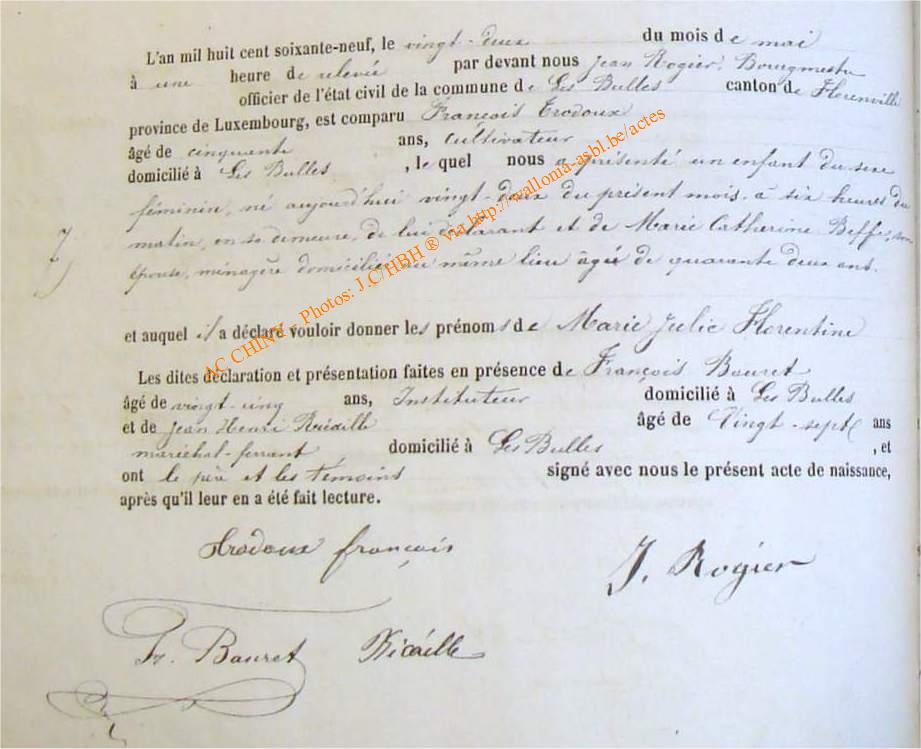 L'an mil huit cent soixante-neuf, le vingt-deux du mois de mai
à une heure de relevée par devant nous Jean Rogier, Bourgmestre
officier de l'état civil de la commune de Les Bulles canton de Florenville
province de Luxembourg, est comparu François Trodoux
âgé de cinquante ans, Cultivateur
domicilié à Les Bulles , le quel nous a présenté un enfant du sexe
féminin, né aujourd'hui vingt-deux du présent mois, à six heures du
7 matin, en sa demeure, de lui déclarant et de Marie Catherine Beffe, son
épouse, ménagère domiciliée au même lieu agée de quarante deux ans.
et auquel il a déclaré vouloir donner les prénoms de Marie Julie Florentine
Les dites déclaration et présentation faites en présence de François Bauret
âgé de vingt-cinq ans, Instituteur domicilié à Les Bulles
et de Jean Henri âgé de Vingt-sept ans
maréchal-ferrant, domicilié à Les Bulles , et
ont le père et les témoins signé avec nous le présent acte de naissance,
après qu'il leur en a été fait lecture.
Trodoux françois
J. Rogier
Fr. Bauret
AC CHINY - Photos: J.C/HBH ® via http://wallonia-asbl.be/actes